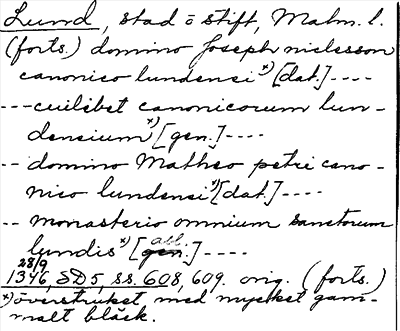 Lund, stad o stift, Malm. l.
(forts.) domino Joseph nielesson
canonico lundensi x) [dat.] ----
---cuilibet canonicorum lun-
densium x) [gen.] ----
-- domino Matheo petri cano-
nico lundensi x) [dat.] ----
-- monasterio omnium sanctorum
abl.
lundis x) [gen.] ----
28/9
1346, SD5, ss. 608, 609. orig. (forts.)
x) överstruket med mycket gam-
malt bläck.